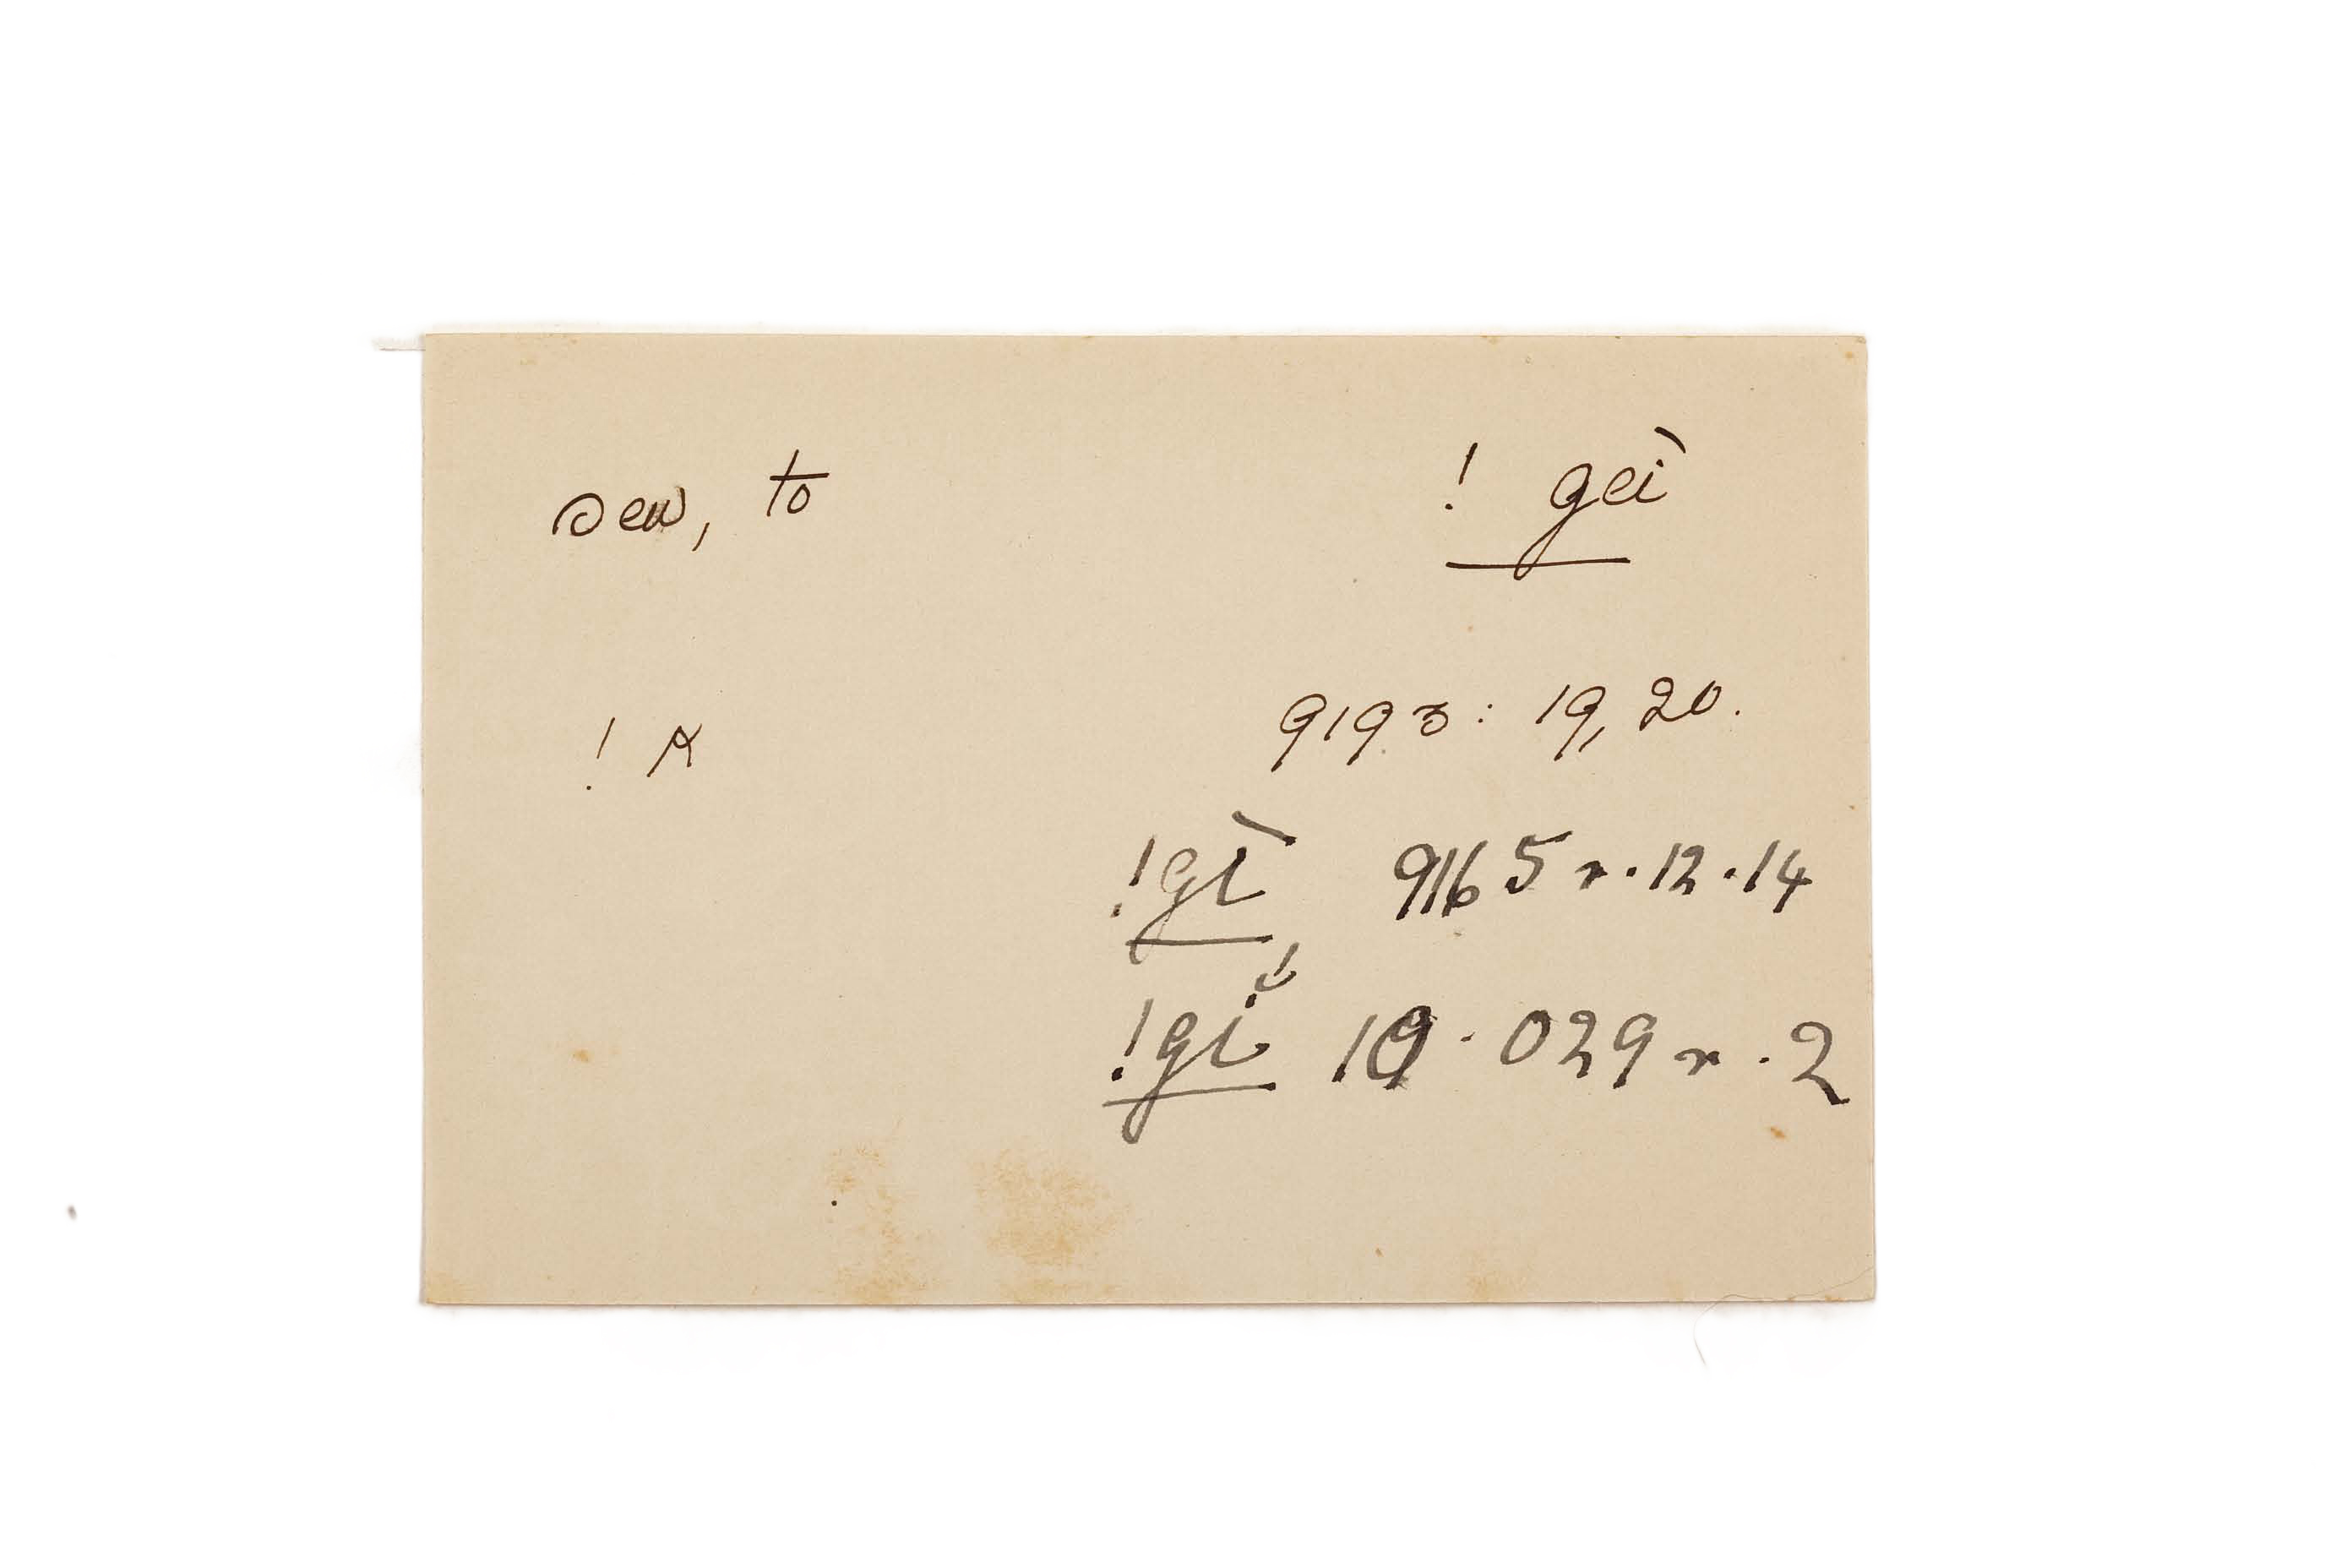 sew, to ! gèi
! k 9193: 19, 20.
!gì 9165 r. 12. 14
!gi 10. 029 r. 2